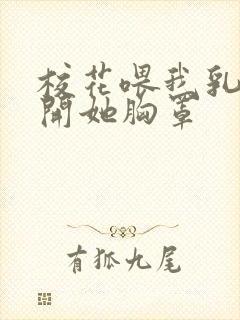 校花喂我乳
開她胸罩
有狐九尾